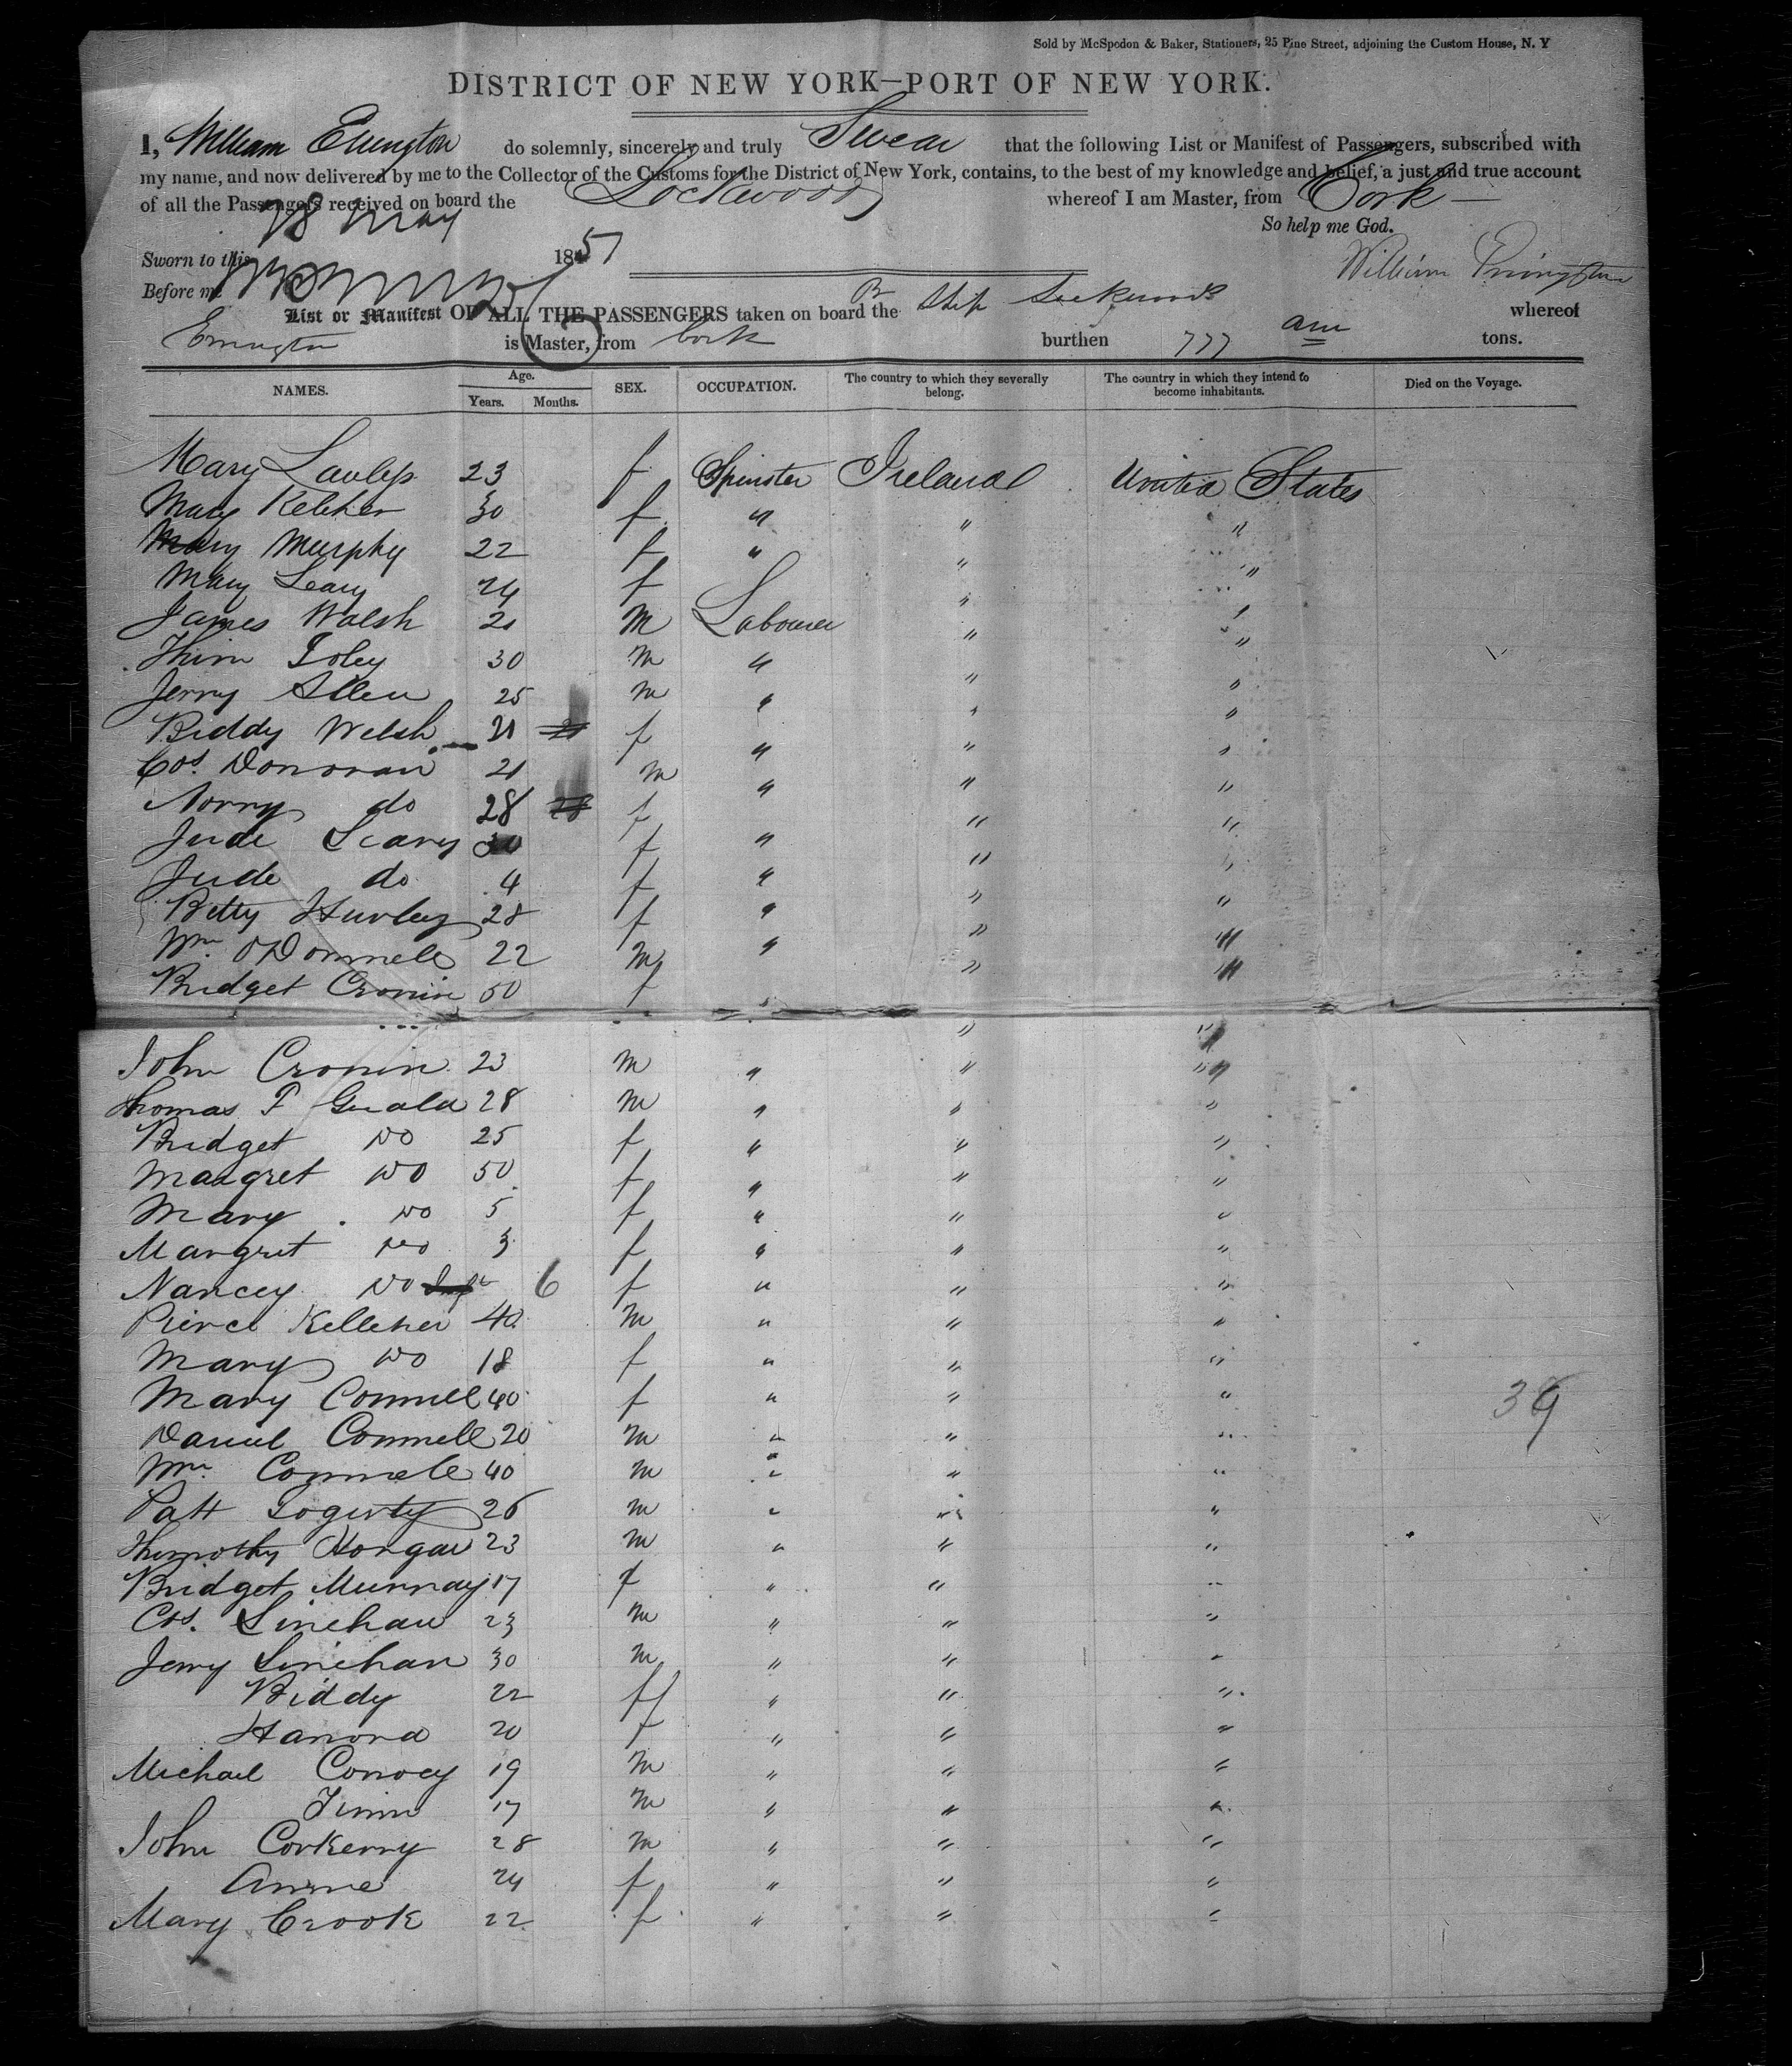 Sold by McSpedon & Baker, Stationers, 25 Pine Street, adjoining the Custom House, N. Y
DISTRICT OF NEW YORK—PORT OF NEW YORK.
I, William Errington do solemnly, sincerely and truly Swear that the following List or Manifest of Passengers, subscribed with
my name, and now delivered by me to the Collector of the Customs for the District of New York, contains, to the best of my knowledge and belief, a just and true account
of all the Passengers received on board the Lockwoods whereof I am Master, from Cork
So help me God.
Sworn to this 28 May 1851
Before me William Errington
List or Manifest OF ALL THE PASSENGERS taken on board the Br Ship Lockwoods whereof
Errington is Master, from Cork burthen 777 tons.
NAMES. Age. Years. Months. SEX. OCCUPATION. The country to which they severally belong. The country in which they intend to become inhabitants. Died on the Voyage.
Mary Lawless 23 f Spinster Ireland United States
Mary Keleher 30 f " " "
Mary Murphy 22 f " " "
Mary Leary 24 f " "
James Walsh 21 M Labourer " "
Thim Foley 30 m " " "
Jerry Allen 25 m " " "
Biddy Welsh 21 f " "
Cos. Donovan 21 m " " "
Norry do 28 f " " "
Jude Leary 30 f " " "
Jude do 4 f " " "
Betty Hurley 28 f " " "
Wm. O Donnell 22 m " " "
Bridget Cronin 50 f " "
John Cronin 23 m " " "
Thomas F Gerald 28 m " " "
Bridget Do 25 f " " "
Margret Do 50 f " " "
Mary Do 5 f " " "
Margret Do 3 f " " "
Nancey Do 6 f " " "
Pierce Kelleher 40 m " " "
Mary Do 18 f " " "
Mary Connell 40 f " " "
39
Daniel Connell 20 m " " "
Wm. Connell 40 m " " "
Patt Fogerty 26 m " " "
Thimothy Horgan 23 m " " "
Bridget Murray 17 f " " "
Cos. Linehan 23 m " " "
Jerry Linehan 30 m " " "
Biddy 22 f " " "
Hanora 20 f " " "
Michael Conroy 19 m " " "
Timm 17 m " " "
John Corkerry 28 m " " "
Anne 24 f " " "
Mary Crook 22 f " " "